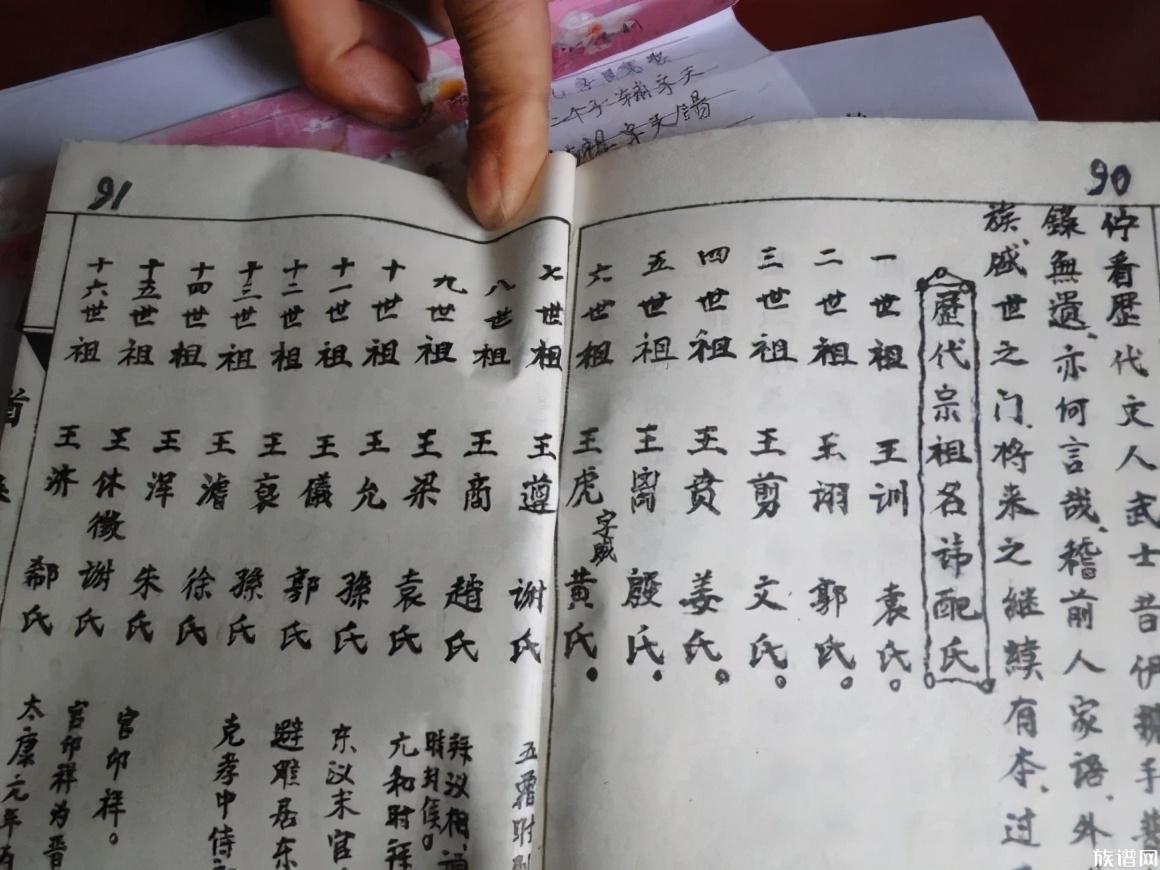 90
佇看歷代文人武士昔伊
錄無遺、亦何言哉、稽前人家語、外
族、盛世之门、将来之继续有本、过
歷代宗祖名讳配氏
一世祖 王训 袁氏。
二世祖 王诩 郭氏。
三世祖 王剪 文氏。
四世祖 王贲 姜氏。
五世祖 王离 殷氏。
六世祖 王虎 字威 黄氏。
91
七世祖 王遵 谢氏 五霸时
八世祖 王商 趙氏 拜议相
时封侯。
九世祖 王梁 袁氏 亢和时拜
十世祖 王允 孫氏 东汉末官
十一世祖 王儀 郭氏 避雎居东
十二世祖 王裒 孫氏 克孝中侍
十三世祖 王濬 徐氏
十四世祖 王渾 朱氏 官印祥。
十五世祖 王休徵 謝氏 官印祥为晋
十六世祖 王济 郗氏 太康元年
族谱网